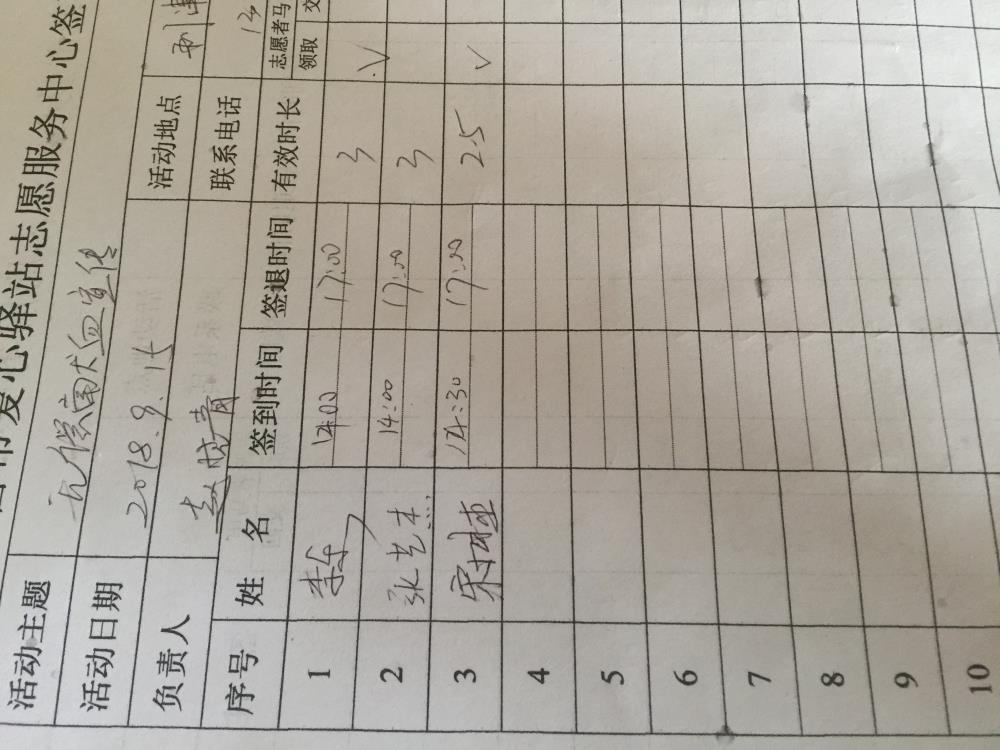 爱心驿站志愿服务中心签
活动主题 无偿献血宣传
活动日期 2018.9.15 活动地点
负责人 赵晓青 联系电话 13
序号 姓名 签到时间 签退时间 有效时长 志愿者马 领取 交
1 14:00 17:00 3
2 张艺 14:00 17:00 3 √
3 宋 14:30 17:00 2.5 √
4
5
6
7
8
9
10